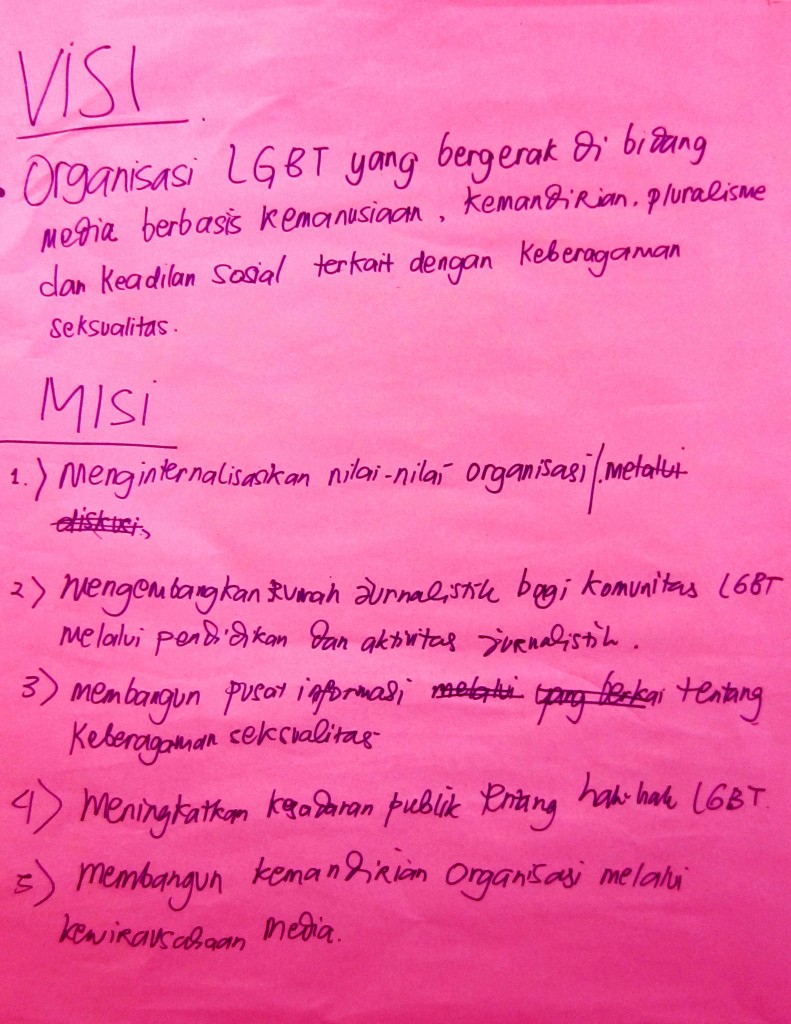 VISI
• Organisasi LGBT yang bergerak di bidang
media berbasis kemanusiaan, kemandirian, pluralisme
dan keadilan sosial terkait dengan keberagaman
seksualitas.
MISI
1.) Menginternalisasikan nilai-nilai organisasi/. melalui
diskusi,
2) Mengembangkan rumah Jurnalistik bagi komunitas LGBT
melalui pendidikan dan aktivitas jurnalistik.
3) membangun pusat informasi melalui yang tentang
Keberagaman seksualitas
4) Meningkatkan kesadaran publik tentang hak-hak LGBT.
5) Membangun kemandirian organisasi melalui
kewirausahaan media.